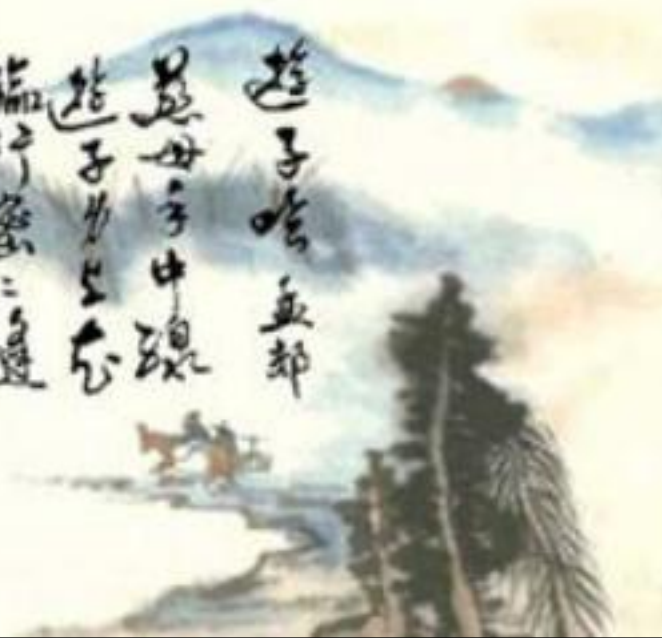 遊子吟 孟郊
慈母手中線
遊子身上衣
臨行密〻縫